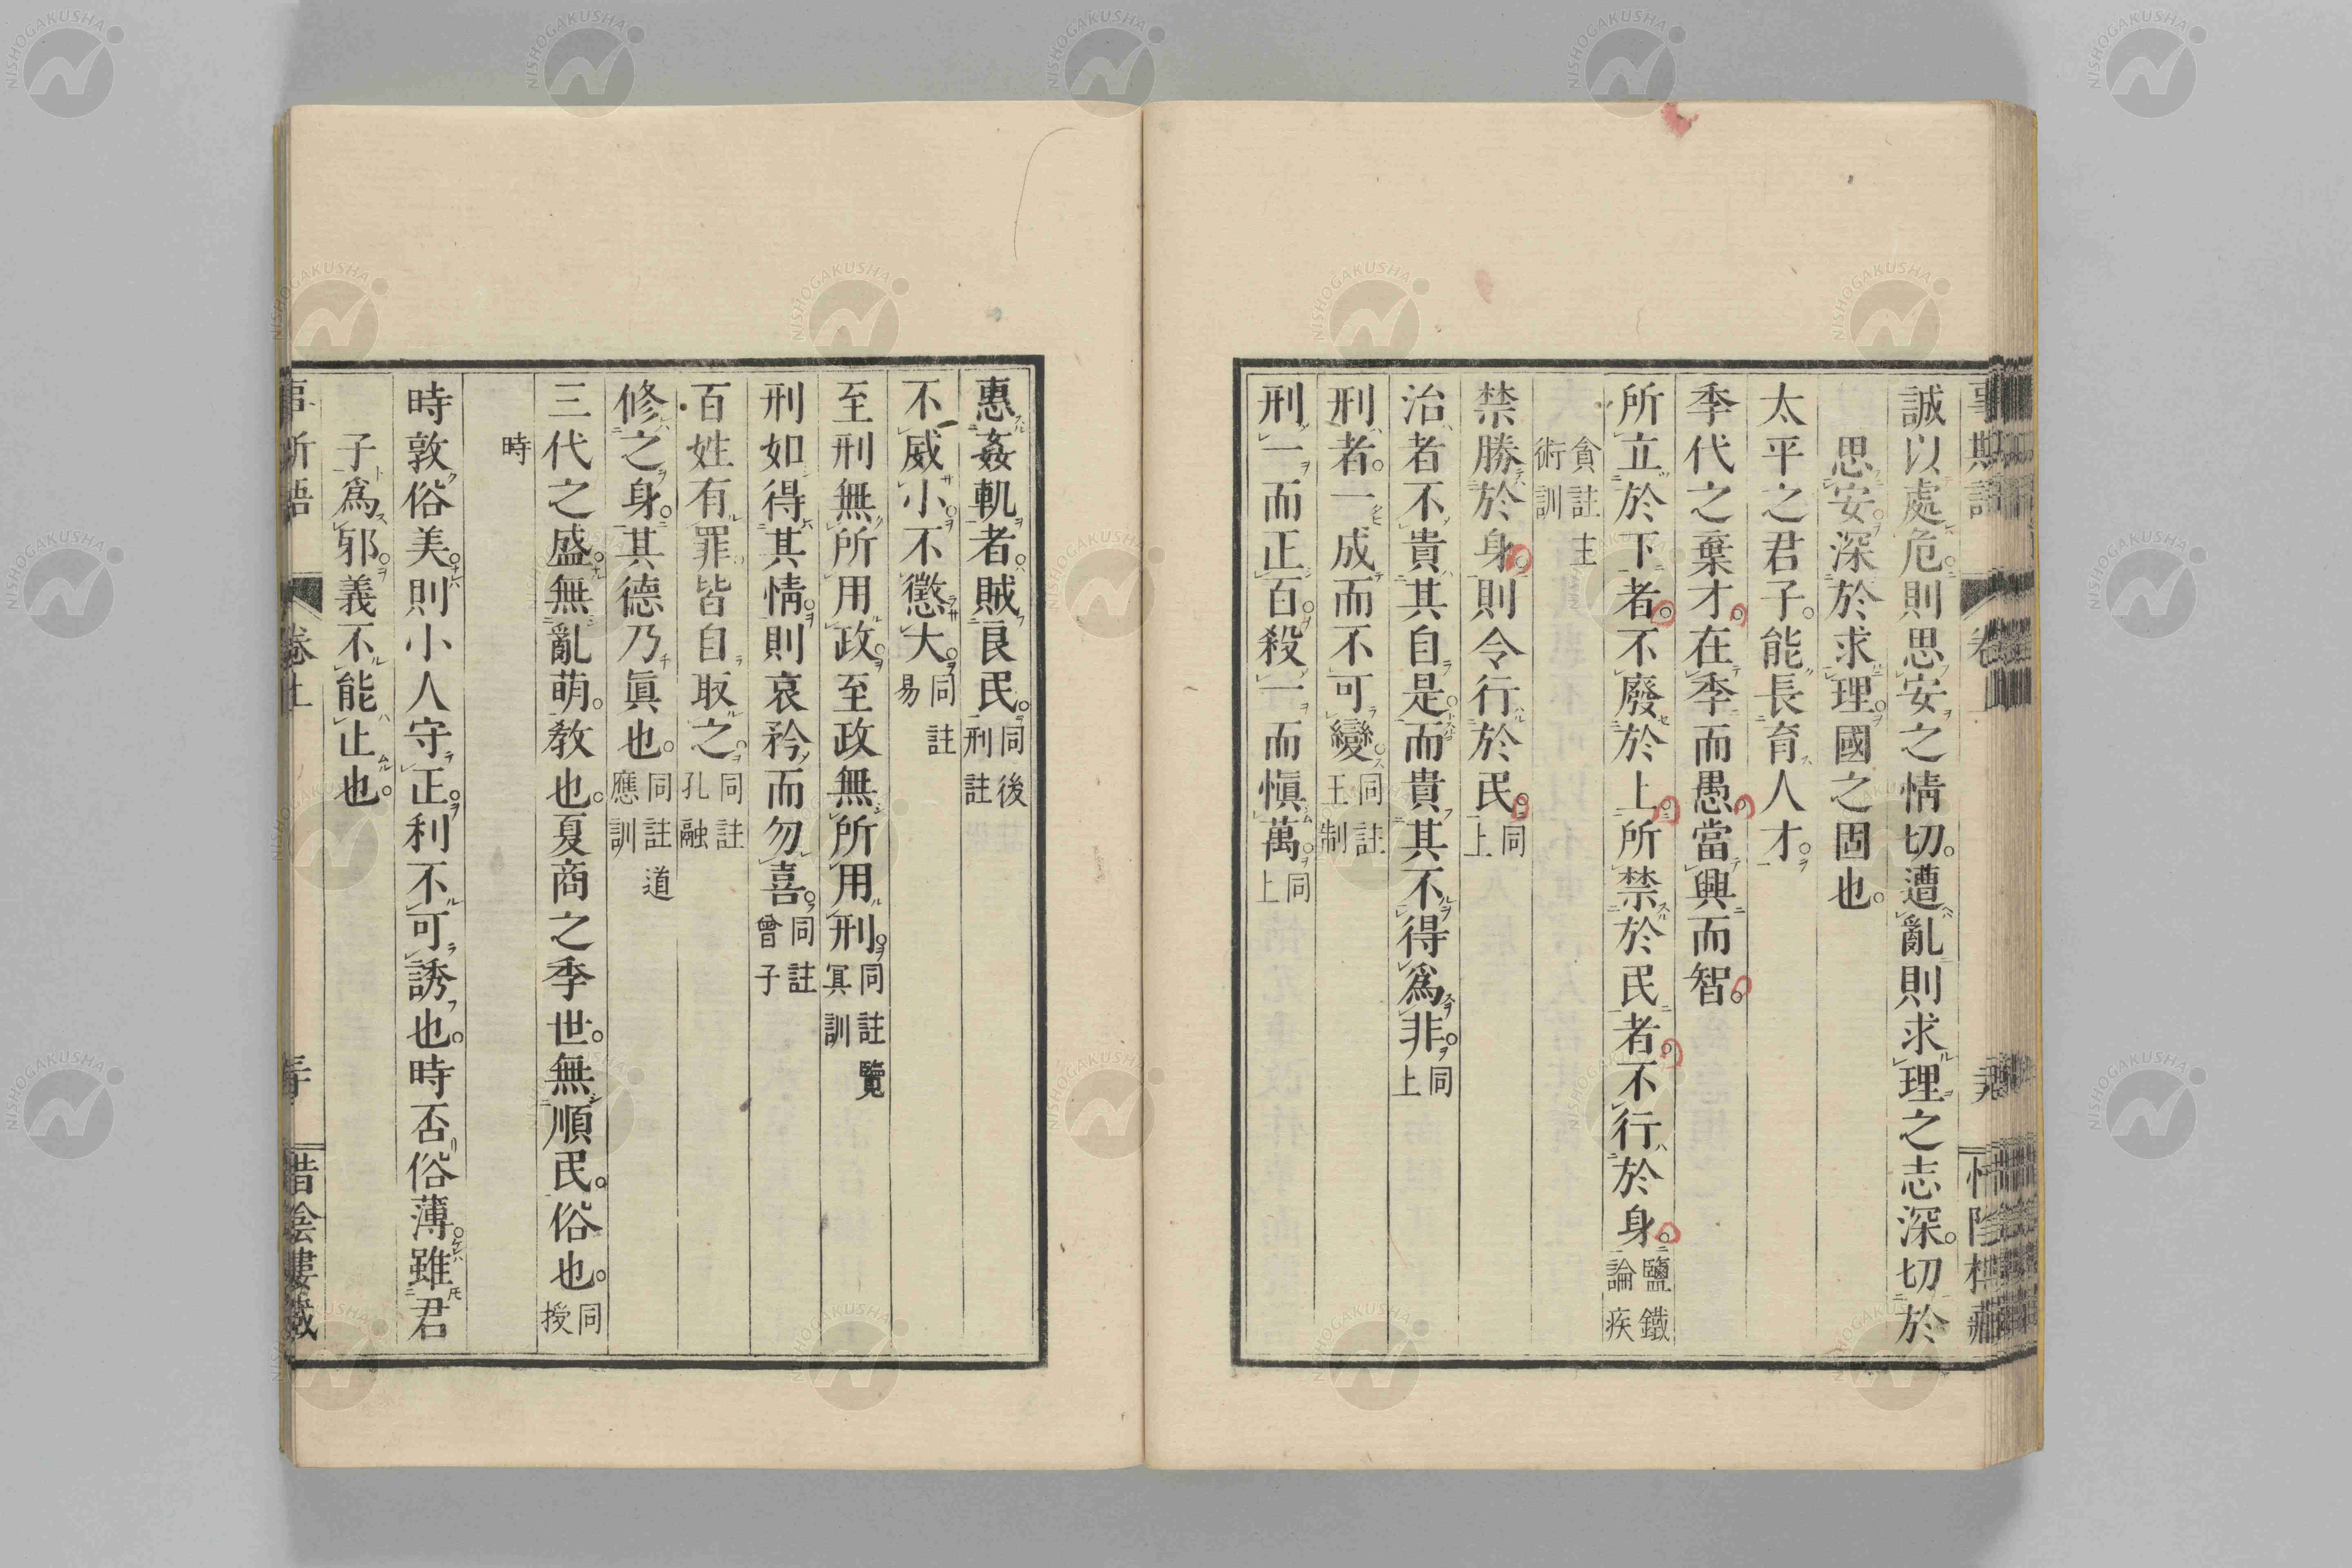 誠以處危。則思安之情切。遭亂則求理之志深。切於
思安。深於求理。國之固也。
太平之君子。能長育人才。
季代之棄才。在季而愚。當興而智。
所立於下者。不廢於上。所禁於民者。不行於身。鹽鐵論疾
貪註主術訓註
禁勝於身。則令行於民。同上
治者不貴其自是。而貴其不得爲非。同上
刑者。一成而不可變。同註王制
刑一而正百。殺一而愼萬。同上
惠姦軌者。賊良民。同後刑註
不威小。不懲大。同註易
至刑無所用政。至政無所用刑。同註覽冥訓
刑如得其情。則哀矜而勿喜。同註曾子
百姓有罪。皆自取之。同註孔融
修之身。其德乃眞也。同註道應訓
三代之盛。無亂萌。敎也。夏商之季世。無順民。俗也。同授
時
時敦俗美。則小人守正。利不可誘也。時否俗薄。雖君
子爲邪。義不能止也。
卷上
NISHOGAKUSHA